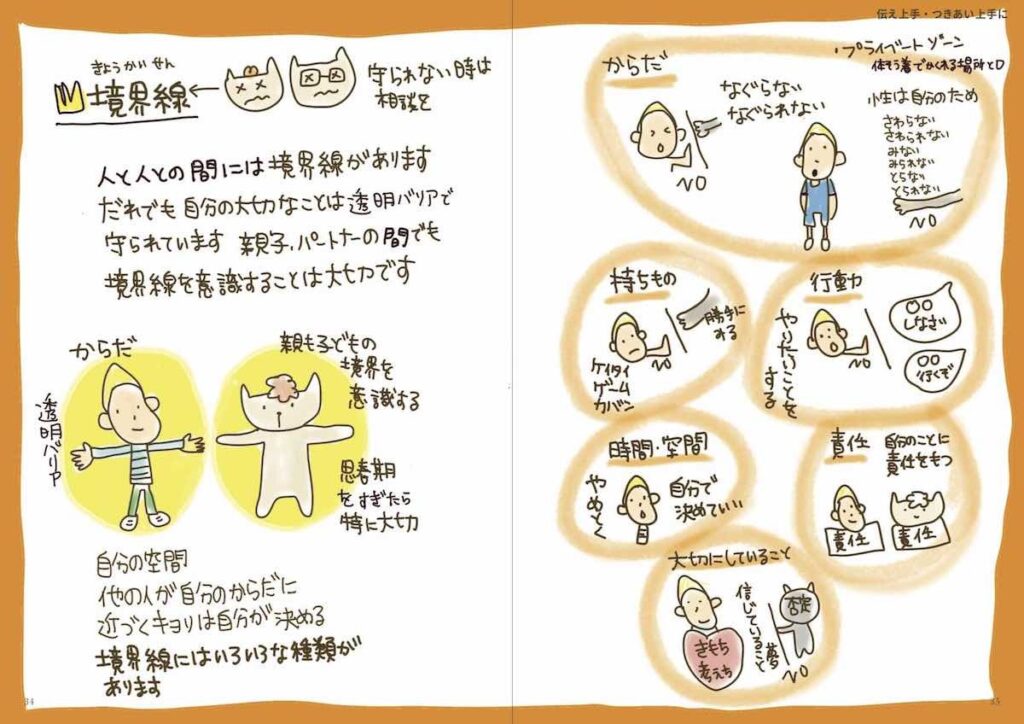 伝え上手・つきあい上手に
きょうかいせん
境界線
守られない時は
相談を
人と人との間には境界線があります
だれでも自分の大切なことは透明バリアで
守られています 親子、パートナーの間でも
境界線を意識することは大切です
からだ
透明バリア
親も子どもの
境界を
意識する
思春期
をすぎたら
特に大切
自分の空間
他の人が自分のからだに
近づくキョリは自分が決める
境界線にはいろいろな種類が
あります
34
からだ
なぐらない
なぐられない
NO
プライベートゾーン
体もう着でかくれる場所と口
小生は自分のため
さわらない
さわられない
みない
みられない
とらない
とられない
NO
持ちもの
勝手に
みる
NO
ケイタイ
ゲーム
カバン
行動
やりたいことを
する
NO
○○
しなさい
○○
行くぞ
時間・空間
やめとく
自分で
決めていい
責任
自分のことに
責任をもつ
責任
責任
大切にしていること
きもち
考え
信じていること
夢
否定
NO
35